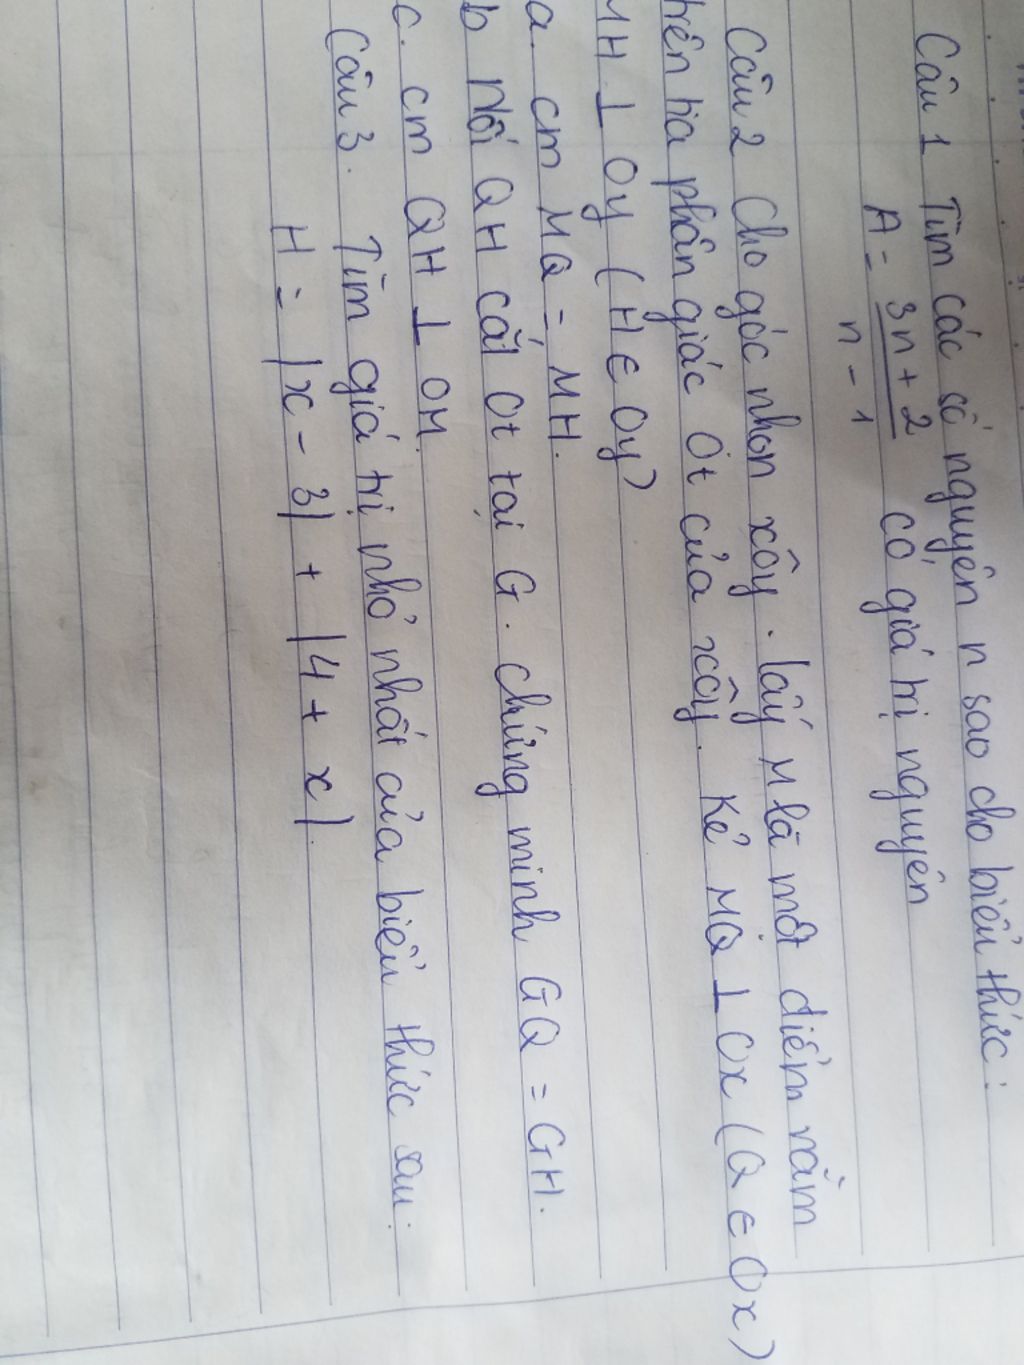 Câu 1 Tìm các số nguyên n sao cho biểu thức:
A = 3n + 2 / n - 1 có giá trị nguyên
Câu 2 Cho góc nhọn xOy. lấy M là một điểm nằm
trên tia phân giác Ot của xOy. Kẻ MQ ⊥ Ox (Q ∈ Ox)
MH ⊥ Oy (H ∈ Oy)
a. cm MQ = MH.
b Nối QH cắt Ot tại G. chứng minh GQ = GH.
c. cm QH ⊥ OM
Câu 3. Tìm giá trị nhỏ nhất của biểu thức sau:
H = |x - 3| + |4 + x|.